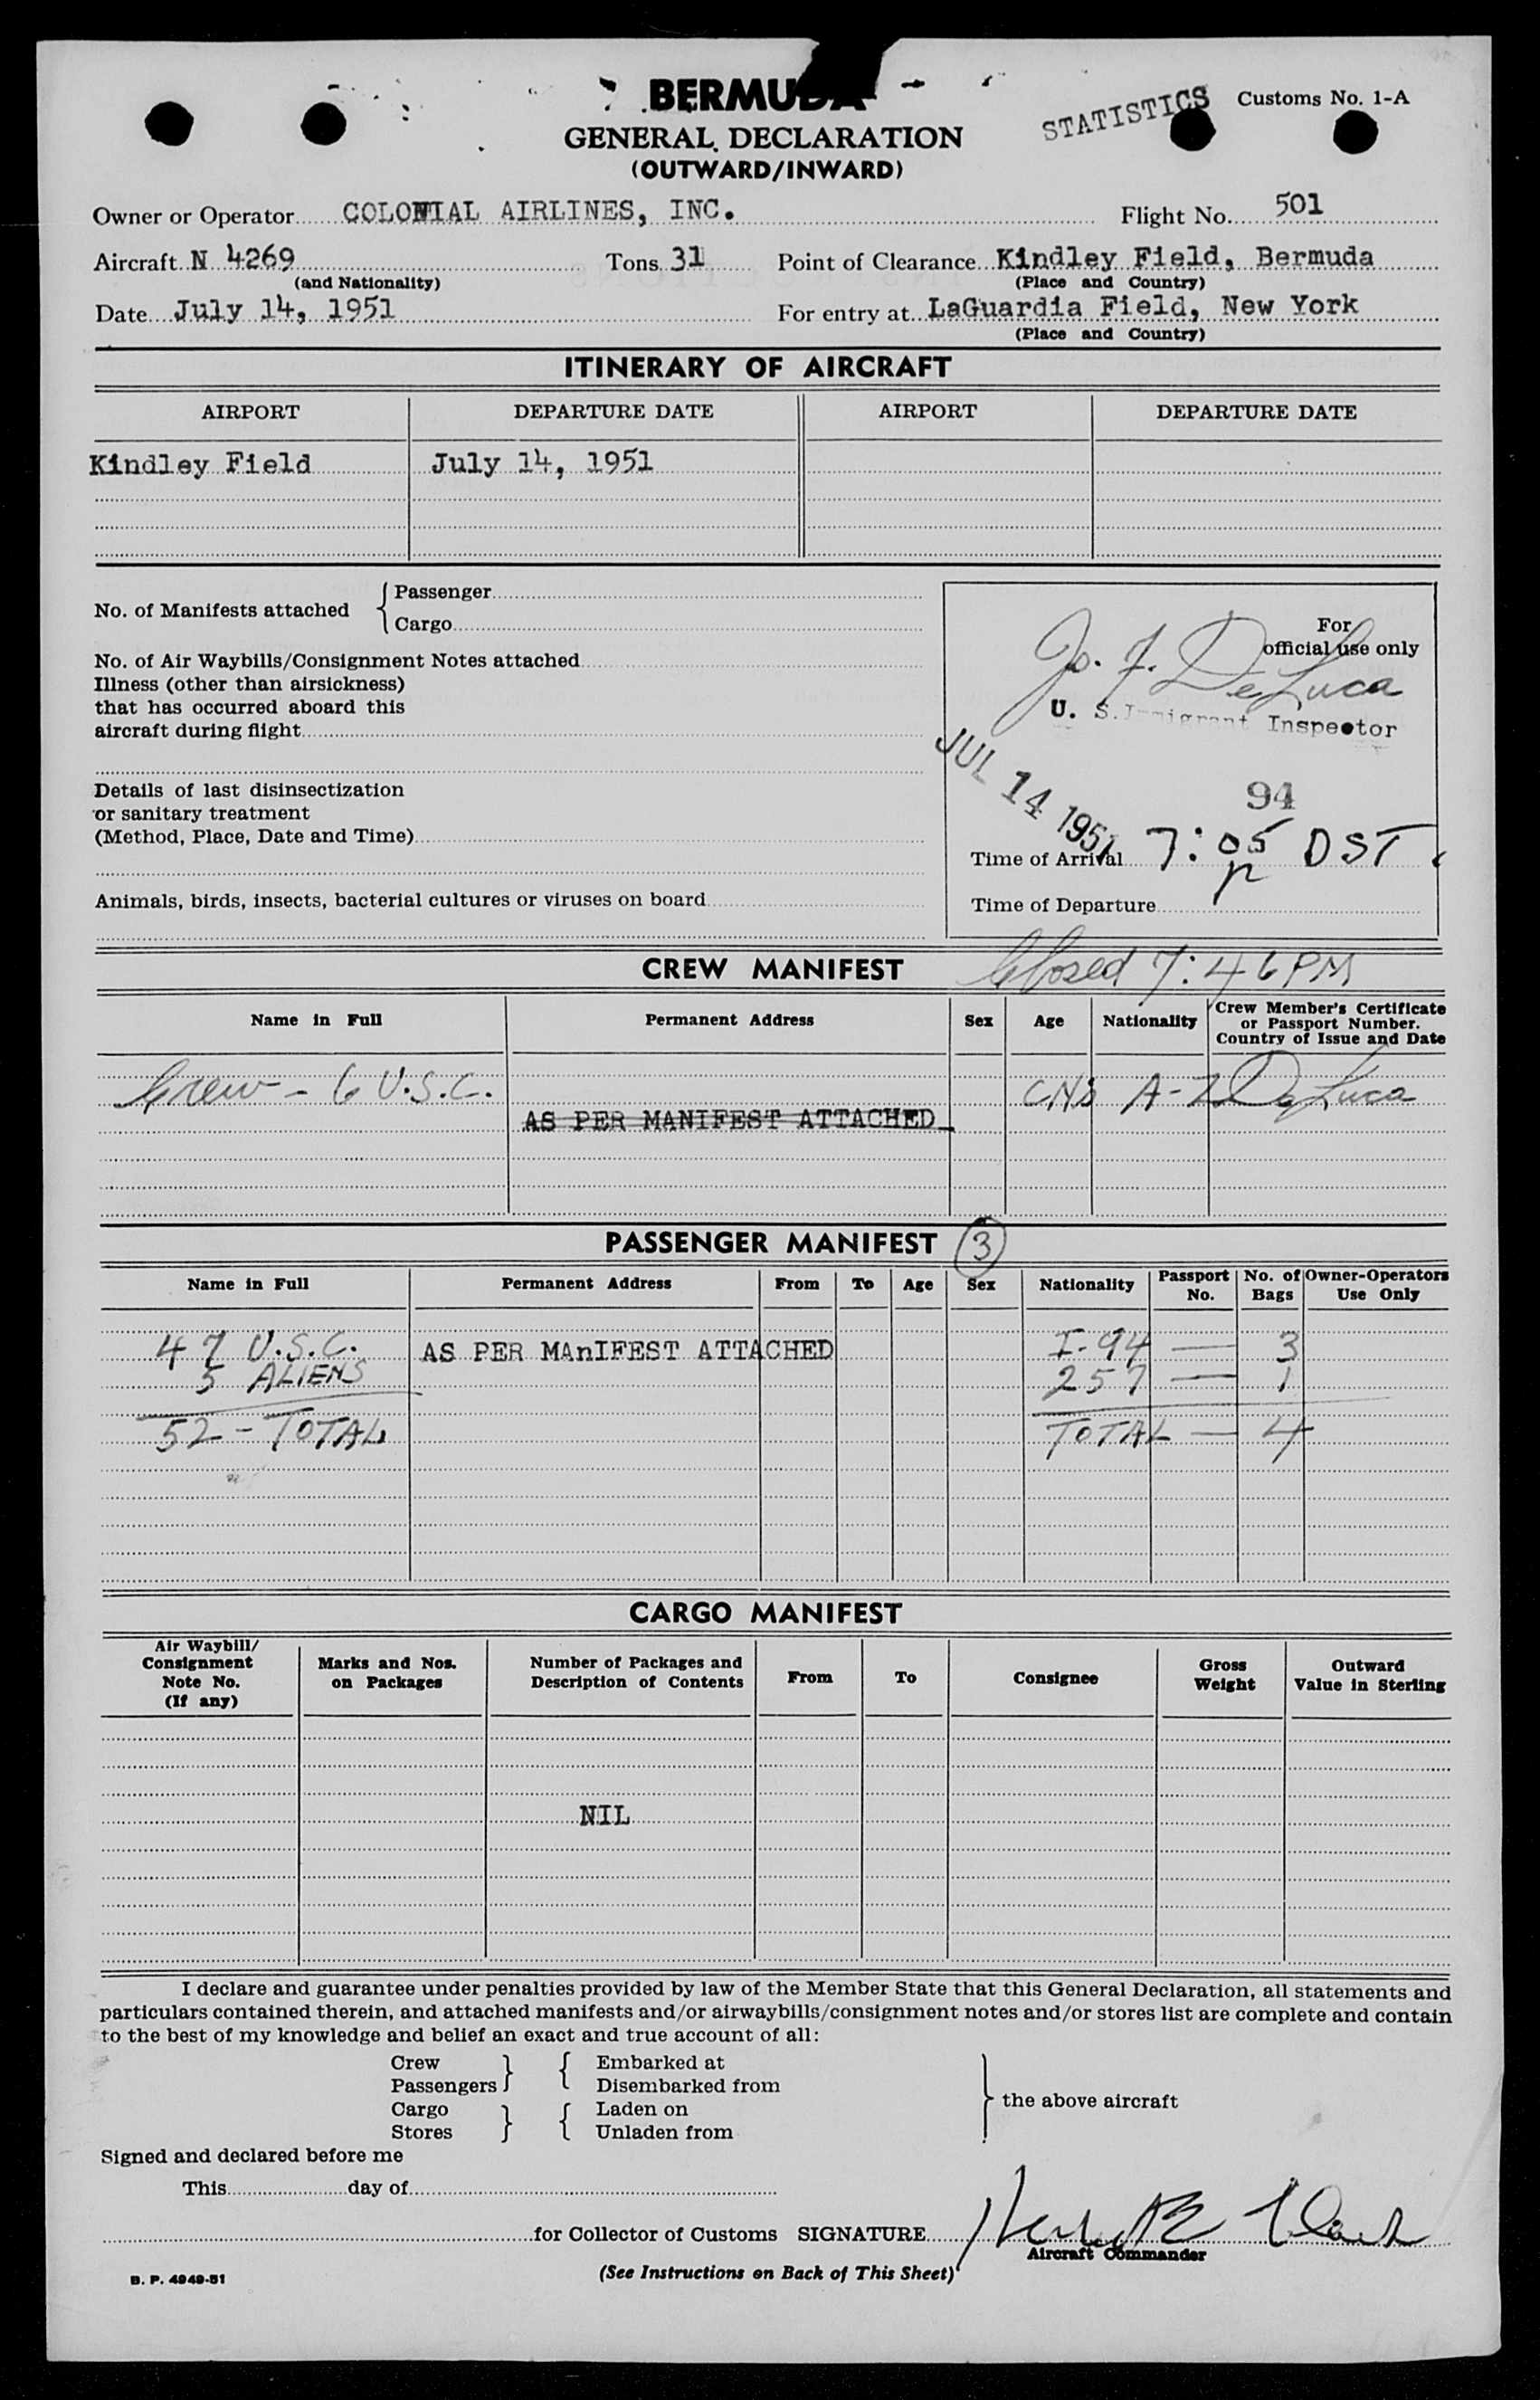 BERMUDA
STATISTICS
Customs No. 1-A
GENERAL DECLARATION
(OUTWARD/INWARD)
Owner or Operator COLONIAL AIRLINES, INC. Flight No. 501
Aircraft N 4269 Tons 31 Point of Clearance Kindley Field, Bermuda
(and Nationality) (Place and Country)
Date July 14, 1951 For entry at LaGuardia Field, New York
(Place and Country)
ITINERARY OF AIRCRAFT
AIRPORT DEPARTURE DATE AIRPORT DEPARTURE DATE
Kindley Field July 14, 1951
No. of Manifests attached { Passenger
Cargo
No. of Air Waybills/Consignment Notes attached
Illness (other than airsickness)
that has occurred aboard this
aircraft during flight
Details of last disinsectization
or sanitary treatment
(Method, Place, Date and Time)
Animals, birds, insects, bacterial cultures or viruses on board
For
official use only
Jo. F. DeLuca
U. S. Immigrant Inspector
JUL 14 1951
94
Time of Arrival 7:05 p DST.
Time of Departure
CREW MANIFEST Closed 7:46 PM
Name in Full Permanent Address Sex Age Nationality Crew Member's Certificate
or Passport Number.
Country of Issue and Date
Crew - 6 U.S.C. A-2 DeLuca
AS PER MANIFEST ATTACHED
PASSENGER MANIFEST 3
Name in Full Permanent Address From To Age Sex Nationality Passport No. No. of Bags Owner-Operators Use Only
47 U.S.C. AS PER MAnIFEST ATTACHED I-94 — 3
5 ALIENS 257 — 1
52 - TOTAL TOTAL — 4
CARGO MANIFEST
Air Waybill/
Consignment
Note No.
(If any)
Marks and Nos.
on Packages
Number of Packages and
Description of Contents
From To Consignee
Gross
Weight
Outward
Value in Sterling
NIL
I declare and guarantee under penalties provided by law of the Member State that this General Declaration, all statements and
particulars contained therein, and attached manifests and/or airwaybills/consignment notes and/or stores list are complete and contain
to the best of my knowledge and belief an exact and true account of all:
Crew } { Embarked at
Passengers Disembarked from
Cargo } { Laden on
Stores Unladen from
} the above aircraft
Signed and declared before me
This day of
for Collector of Customs SIGNATURE
Aircraft Commander
(See Instructions on Back of This Sheet)
B. P. 4949-51